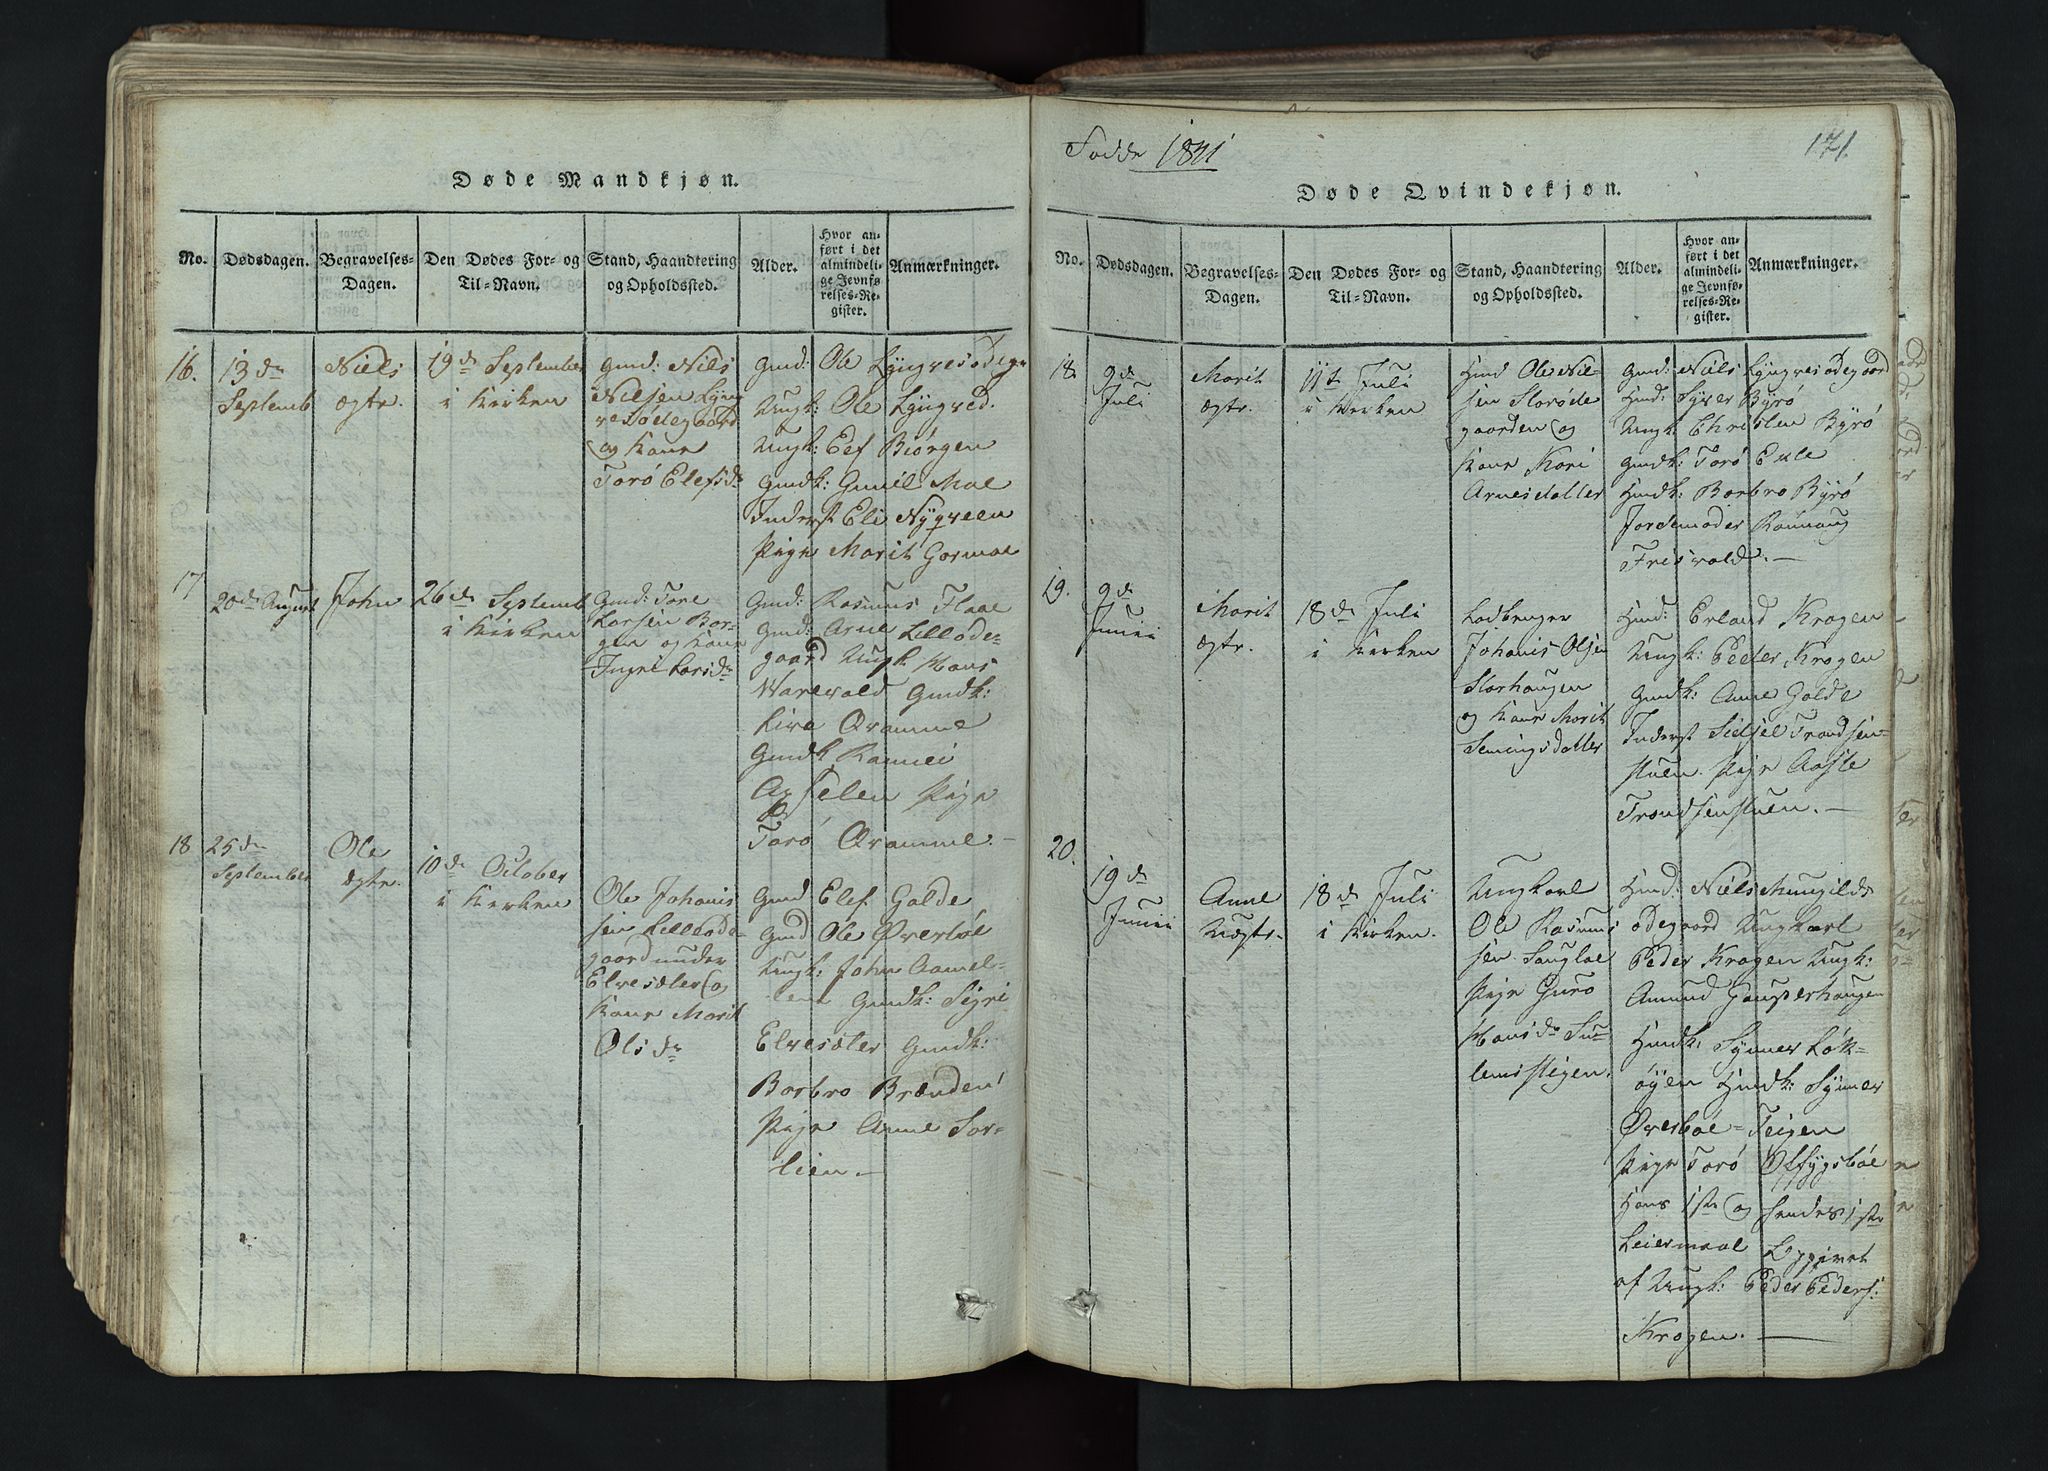 Døde Mandkjøn.
No.
Dødsdagen.
Begravelses-
Dagen.
Den Dødes For- og
Til-Navn.
Stand, Haandtering
og Opholdssted.
Alder.
Hvor an-
ført i det
almindeli-
ge Jevnfø-
relses-Re-
gister.
Anmærkninger.
16.
13de
Septemb
Niels
ægtr.
19de September
i Kirken
Gmd: Nils
Nilsen Lyng
vesødegaard
og Kone
Torø Elefsd.
Gmd: Ole Lyngvesødegr
Ungk: Ole Lyngved.
Ungk: Elef Biørgen
Gmdk: Gunil Moe
Inderst Eli Nygveen
Pige Marit Gormoe
17
20de August
John
26de Septemb
i Kirken
Gmd: Tore
Larsen Bor-
gen og Kone
Ingri Larsdr
Gmd: Rasmus Flaae
Gmd: Arne Lilløde-
gaard Ungk Hans
Warevold Gmdk:
Live Qvamme
Gmdk Rannei
selen Pige
Torø Qvamme. -
18
25de
September
Ole
ægtr.
10de October
i Kirken
Ole Johanis
sen Lilleøde-
gaard under
Elvesæter og
Kone Marit
Olsdr
Gmd Elef Golde
Gmd Ole Øverbøl
Ungk: John Aamel-
lem Gmdk: Sigri
Elvesæter Gmdk:
Borbro Brænden
Pige Anne Sør-
lien. -
Fødde 1821
171.
Døde Qvindekjøn.
No.
Dødsdagen.
Begravelses-
Dagen.
Den Dødes For- og
Til-Navn.
Stand, Haandtering
og Opholdssted.
Alder.
Hvor an-
ført i det
almindeli-
ge Jevnfø-
relses-Re-
gister.
Anmærkninger.
18
9de
Juli
Marit
ægtr.
11t Juli
i Kirken
Hmd Ole Nil-
sen Storøde
gaarden og
Kone Kari
Arnesdatter
Gmd: Niels Lyngvesødegaard
Hmd: Syver Byrø
Ungk: Christen Byrø
Gmdk: Torø Ekle
Hmdk: Borbro Byrø
Jordemoder Rannaug
Frisvold. -
19.
9de
Junii
Marit
ægtr.
18de Juli
i Kirken
Ladbruger
Johanis Olsen
Storhaugen
og Kone Marit
Semingsdatter
Hmd: Erland Krogen
Ungk: Peder Krogen
Gmdk: Anne Golde
Inderst Sidsel Trondsen-
stuen. Pige Aaste
Trondsenstuen. -
20.
19de
Junii
Anne
Uægtr.
18de Juli
i Kirken.
Ungkarl
Ole Rasmus
sen Sougloe
Pige Guro
Hansdr Sus
lemsstigen.
Hmd: Niels Mungilds
ødegaard Ungkarl
Peder Krogen Ungk:
Amund Gaupserhaugen
Hmdk: Synner Løk-
øyen Hmdk: Synner
Øverbøe-Teigen
Pige Torø Offygsbøe
Hans 1ste og hendes 1ste
Leiermaal Opgivet
af Ungk: Peder Peders:
Krogen. -